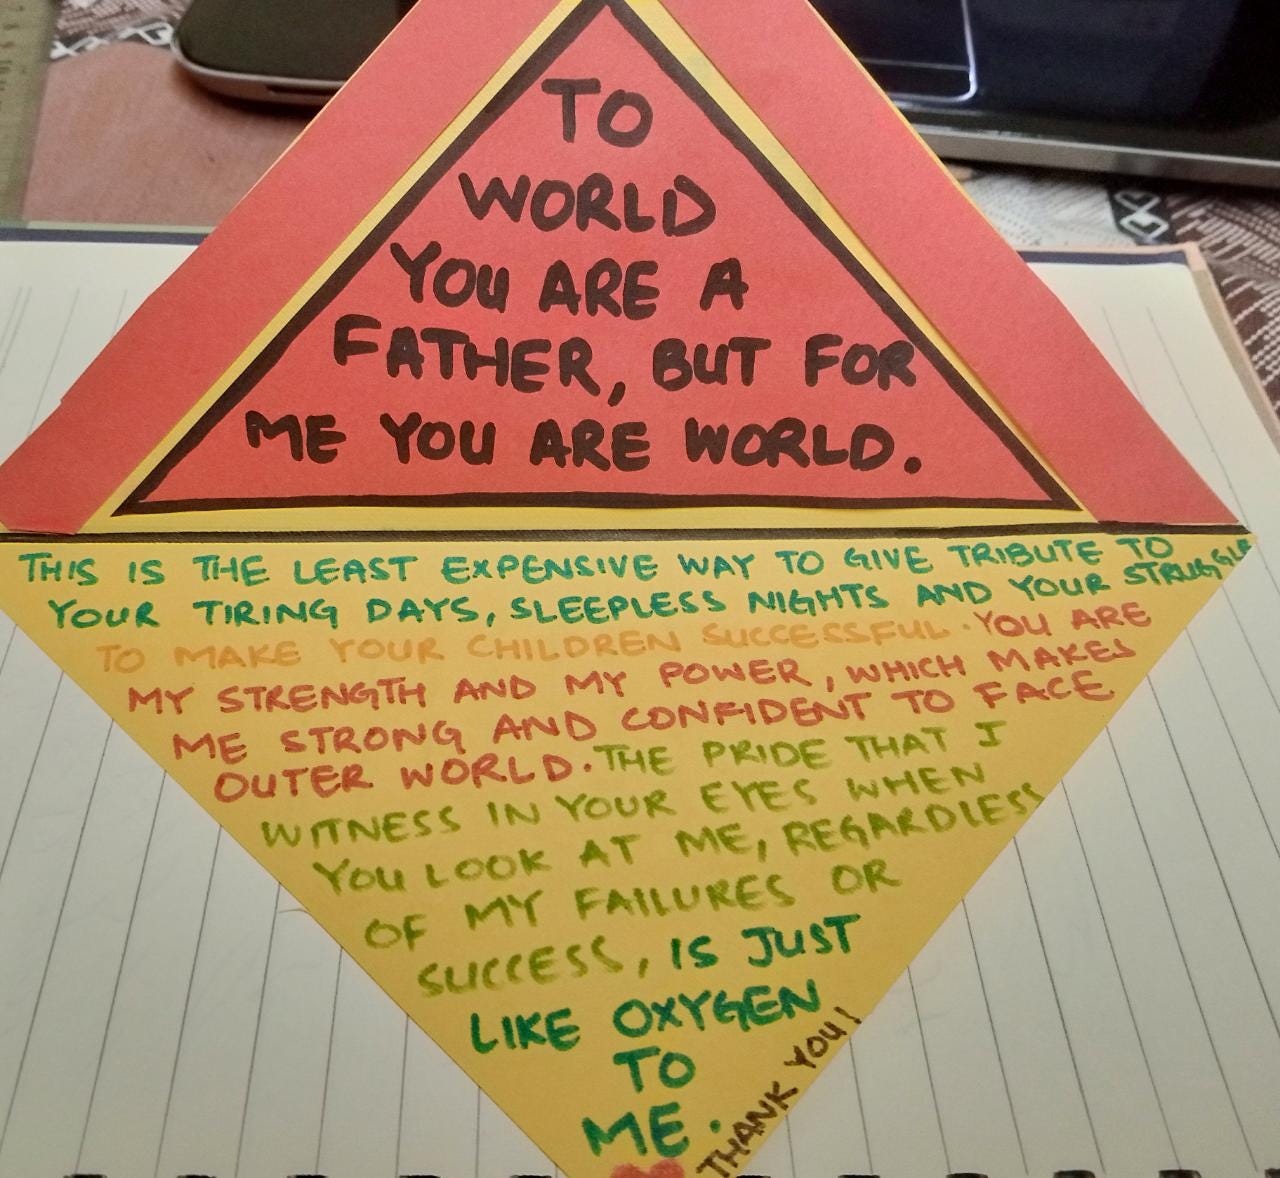 TO
WORLD
YOU ARE A
FATHER, BUT FOR
ME YOU ARE WORLD.
THIS IS THE LEAST EXPENSIVE WAY TO GIVE TRIBUTE TO
YOUR TIRING DAYS, SLEEPLESS NIGHTS AND YOUR STRUGGLE
TO MAKE YOUR CHILDREN SUCCESSFUL. YOU ARE
MY STRENGTH AND MY POWER, WHICH MAKES
ME STRONG AND CONFIDENT TO FACE
OUTER WORLD. THE PRIDE THAT I
WITNESS IN YOUR EYES WHEN
YOU LOOK AT ME, REGARDLESS
OF MY FAILURES OR
SUCCESS, IS JUST
LIKE OXYGEN
TO
ME.
THANK YOU!